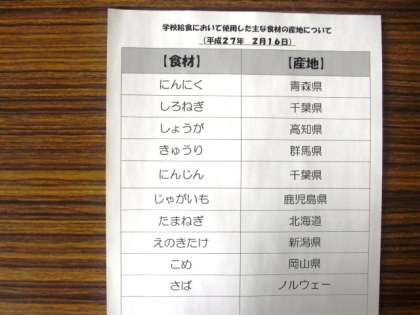 学校給食において使用した主な食材の産地について
（平成27年　2月16日）
【食材】　【産地】
にんにく　青森県
しろねぎ　千葉県
しょうが　高知県
きゅうり　群馬県
にんじん　千葉県
じゃがいも　鹿児島県
たまねぎ　北海道
えのきたけ　新潟県
こめ　岡山県
さば　ノルウェー